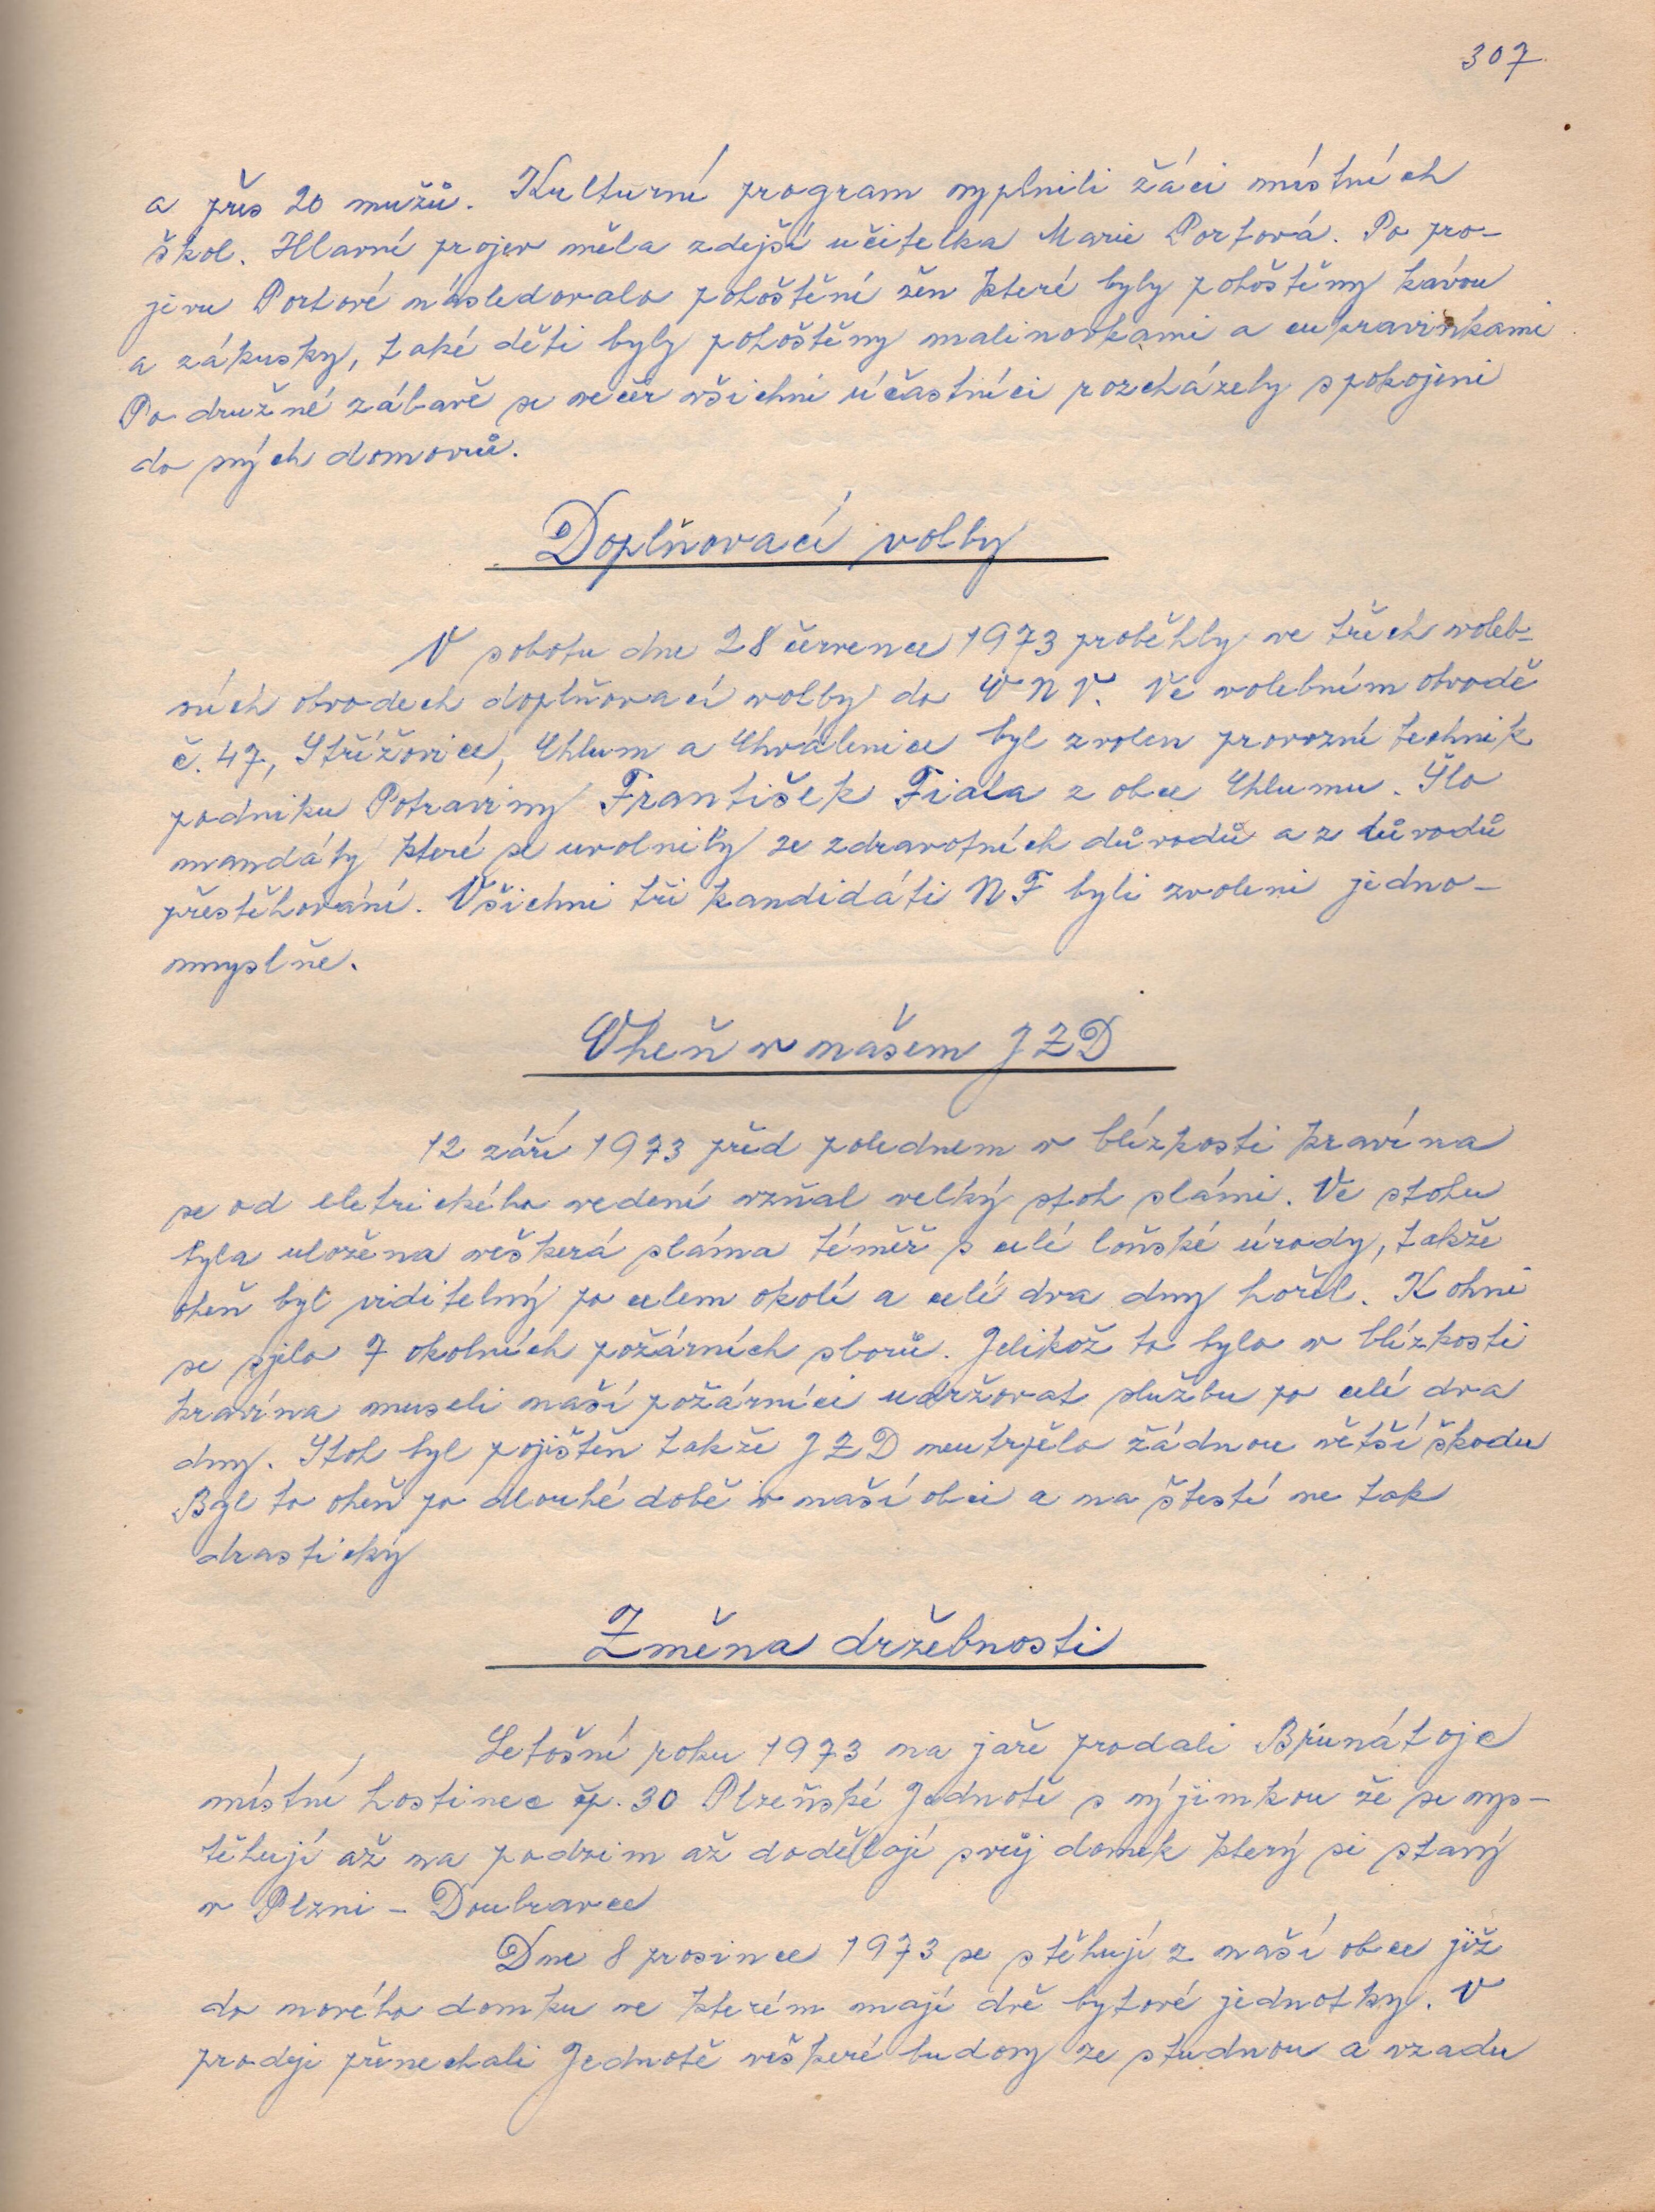 307
a přes 20 mužů. Kulturní program vyplnili žáci místních
škol. Hlavní projev měla zdejší učitelka Marie Portová. Po pro-
jevu Portové následovalo pohoštění žen které byly pohoštěny kávou
a zákusky, také děti byly pohoštěny malinovkami a cukravinkami
Po družné zábavě se večer všichni účastníci rozcházely spokojeni
do svých domovů.
Doplňovací volby
V sobotu dne 28 července 1973 proběhly ve třech voleb-
ních obvodech doplňovací volby do ONV. Ve volebním obvodě
č. 47, Střížovice, Chlum a Chválenice byl zvolen provozní technik
podniku Potraviny František Fiala z obce Chlumu. Šlo
mandáty které se uvolnily ze zdravotních důvodů a z důvodů
přestěhování. Všichni tři kandidáti NF byli zvoleni jedno-
myslňe.
Oheň v našem JZD
12 září 1973 před polednem v blízkosti kravína
se od eletrického vedení vzňal velký stoh slámi. Ve stohu
byla uložena veškerá sláma téměř s celé loňské úrody, takže
oheň byl viditelný po celem okolí a celé dva dny hořel. K ohni
se sjelo 7 okolních požárních sborů. Jelikož to bylo v blízkosti
kravína museli naší požárníci udržovat službu po celé dva
dny. Stoh byl pojištěn takže JZD neutrpělo žádnou větší škodu
Byl to oheň po dlouhé době v naší obci a na štestí ne tak
drastický
Změna držebnosti
Letošní roku 1973 na jaře prodali Brunátoje
místní hostinec čp. 30 Plzeňské Jednotě s výjimkou že se vys-
těhují až na podzim až dodělají svůj domek který si stavý
v Plzni - Doubravce
Dne 8 prosince 1973 se stěhují z naší obce již
do nového domku ve kterém mají dvě bytové jednotky. V
prodeji přenechali Jednotě veškeré budovy ze studnou a vzadu